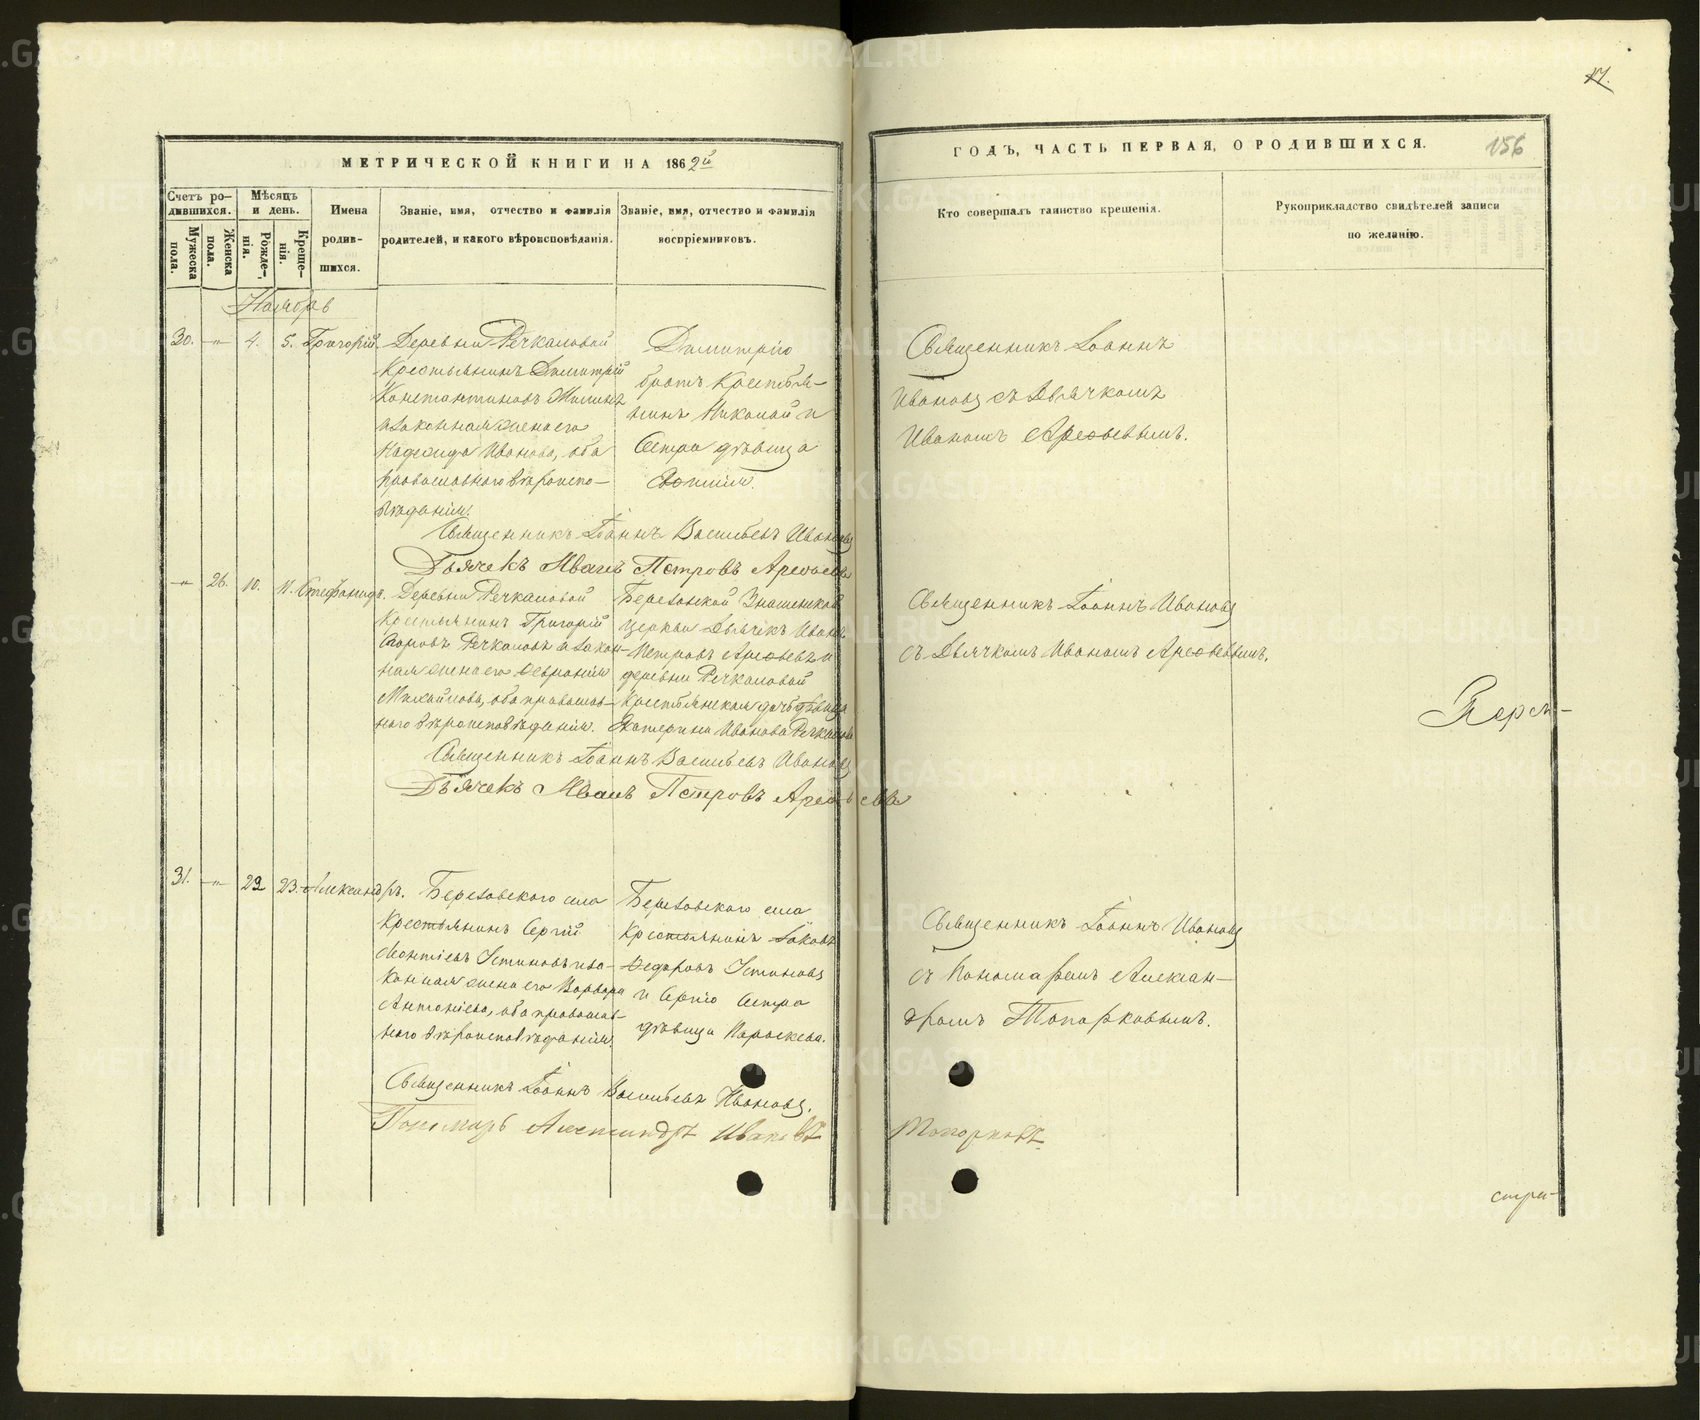 17.
156
МЕТРИЧЕСКОЙ КНИГИ НА 1862й
ГОДЪ, ЧАСТЬ ПЕРВАЯ, О РОДИВШИХСЯ.
Счетъ родившихся.
Мужеска пола.
Женска пола.
Мѣсяцъ и день.
Рожденія.
Крещенія.
Имена родившихся.
Званіе, имя, отчество и фамилія родителей, и какого вѣроисповѣданія.
Званіе, имя, отчество и фамилія воспріемниковъ.
Кто совершалъ таинство крещенія.
Рукоприкладство свидѣтелей записи по желанію.
Ноябрь
30. —"— 4. 5. Григорій
Деревни Речкаловой
крестьянинъ Димитрій
Константиновъ
и законная жена его
Надежда Иванова, оба
православнаго вѣроиспо-
вѣданія.
Димитрію
братъ крестья-
нинъ Николай и
сестра дѣвица
Священникъ Іоаннъ
Ивановъ съ Дьячкомъ
Иваномъ Арефьевымъ.
Священникъ Іоаннъ Васильевъ Ивановъ
Дьячекъ Иванъ Петровъ Арефьевъ
—"— 26. 10. 11. Стефанида.
Деревни Речкаловой
крестьянинъ Григорій
Егоровъ Речкаловъ и закон-
ная жена его Февронія
Михайлова, оба православ-
наго вѣроисповѣданія.
Березовской Знаменской
церкви Дьячекъ Иванъ
Петровъ Арефьевъ и
деревни Речкаловой
крестьянская дочь дѣвица
Екатерина Иванова Речкалова
Священникъ Іоаннъ Ивановъ
съ Дьячкомъ Иваномъ Арефьевымъ.
Священникъ Іоаннъ Васильевъ Ивановъ
Дьячекъ Иванъ Петровъ Арефьевъ
31. —"— 22 23. Александръ.
Березовскаго села
крестьянинъ Сергій
Леонтіевъ Устиновъ и за-
конная жена его Варвара
Антоніева, оба православ-
наго вѣроисповѣданія.
Березовскаго села
крестьянинъ Іаковъ
Федоровъ Устиновъ
и Сергію сестра
дѣвица Параскева.
Священникъ Іоаннъ Ивановъ
съ Пономаремъ Алексан-
дромъ Топорковымъ.
Священникъ Іоаннъ Васильевъ Ивановъ.
Пономарь Александръ Ивановъ Топорковъ
METRIKI.GASO-URAL.RU